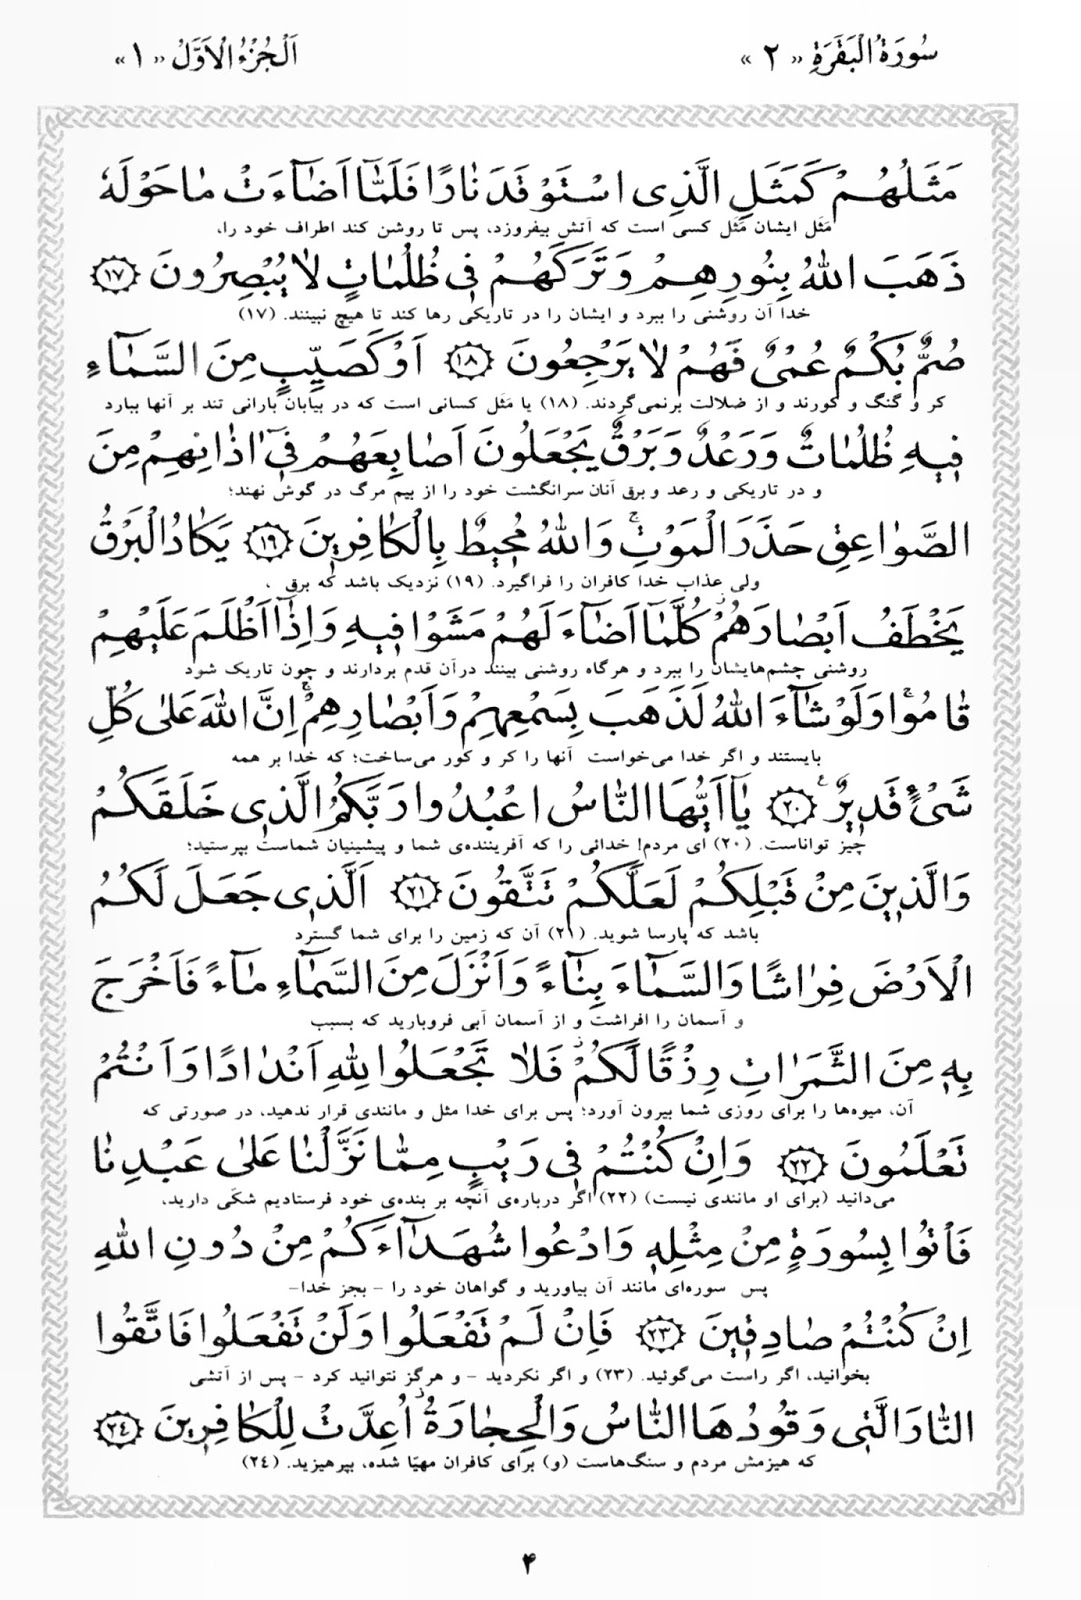 سُورَةُ الْبَقَرَةِ «۲»
اَلْجُزْءُ الْاَوَّلُ «۱»
مَثَلُهُمْ كَمَثَلِ الَّذِى اسْتَوْقَدَ نٰارًا فَلَمّٰٓا اَضٰٓاءَتْ مٰا حَوْلَهُ
مَثَل ایشان مَثَل کسی است که آتش بیفروزد، پس تا روشن کند اطراف خود را،
ذَهَبَ اللّٰهُ بِنُورِهِمْ وَتَرَكَهُمْ فِى ظُلُمٰاتٍ لٰا يُبْصِرُونَ ﴿١٧﴾
خدا آن روشنی را ببرد و ایشان را در تاریکی رها کند تا هیچ نبینند. (۱۷)
صُمٌّ بُكْمٌ عُمْىٌ فَهُمْ لٰا يَرْجِعُونَ ﴿١٨﴾ اَوْ كَصَيِّبٍ مِنَ السَّمٰٓاءِ
کر و گنگ و کورند و از ضلالت برنمی‌گردند. (۱۸) یا مَثل کسانی است که در بیابان بارانی تند بر آنها ببارد
فِيهِ ظُلُمٰاتٌ وَرَعْدٌ وَبَرْقٌ يَجْعَلُونَ اَصٰابِعَهُمْ فِىٓ اٰذٰانِهِمْ مِنَ
و در تاریکی و رعد و برق آنان سرانگشت خود را از بیم مرگ در گوش نهند؛
الصَّوٰاعِقِ حَذَرَ الْمَوْتِ ۚ وَاللّٰهُ مُحِيطٌ بِالْكٰافِرِينَ ﴿١٩﴾ يَكٰادُ الْبَرْقُ
ولی عذاب خدا کافران را فراگیرد. (۱۹) نزدیک باشد که برق ،
يَخْطَفُ اَبْصٰارَهُمْ ۖ كُلَّمٰٓا اَضٰٓاءَ لَهُمْ مَشَوْا فِيهِ وَاِذٰٓا اَظْلَمَ عَلَيْهِمْ
روشنی چشم‌هایشان را ببرد و هرگاه روشنی بینند درآن قدم بردارند و چون تاریک شود
قٰامُوا ۚ وَلَوْ شٰٓاءَ اللّٰهُ لَذَهَبَ بِسَمْعِهِمْ وَاَبْصٰارِهِمْ ۚ اِنَّ اللّٰهَ عَلٰى كُلِّ
بایستند و اگر خدا می‌خواست آنها را کر و کور می‌ساخت؛ که خدا بر همه
شَىْءٍ قَدِيرٌ ﴿٢٠﴾ يٰٓا اَيُّهَا النّٰاسُ اعْبُدُوا رَبَّكُمُ الَّذِى خَلَقَكُمْ
چیز تواناست. (۲۰) ای مردم! خدائی را که آفریننده‌ی شما و پیشینیان شماست بپرستید؛
وَالَّذِينَ مِنْ قَبْلِكُمْ لَعَلَّكُمْ تَتَّقُونَ ﴿٢١﴾ اَلَّذِى جَعَلَ لَكُمُ
باشد که پارسا شوید. (۲۱) آن که زمین را برای شما گسترد
الْاَرْضَ فِرٰاشًا وَالسَّمٰٓاءَ بِنٰٓاءً وَاَنْزَلَ مِنَ السَّمٰٓاءِ مٰٓاءً فَاَخْرَجَ
و آسمان را افراشت و از آسمان آبی فروبارید که بسبب
بِهِ مِنَ الثَّمَرٰاتِ رِزْقًا لَكُمْ ۖ فَلٰا تَجْعَلُوا لِلّٰهِ اَنْدٰادًا وَاَنْتُمْ
آن، میوه‌ها را برای روزی شما بیرون آورد؛ پس برای خدا مثل و مانندی قرار ندهید، در صورتی که
تَعْلَمُونَ ﴿٢٢﴾ وَاِنْ كُنْتُمْ فِى رَيْبٍ مِمّٰا نَزَّلْنٰا عَلٰى عَبْدِنٰا
می‌دانید (برای او مانندی نیست) (۲۲) اگر درباره‌ی آنچه بر بنده‌ی خود فرستادیم شکّی دارید،
فَاْتُوا بِسُورَةٍ مِنْ مِثْلِهِ وَادْعُوا شُهَدٰٓاءَكُمْ مِنْ دُونِ اللّٰهِ
پس سوره‌ای مانند آن بیاورید و گواهان خود را – بجز خدا–
اِنْ كُنْتُمْ صٰادِقِينَ ﴿٢٣﴾ فَاِنْ لَمْ تَفْعَلُوا وَلَنْ تَفْعَلُوا فَاتَّقُوا
بخوانید، اگر راست می‌گوئید. (۲۳) و اگر نکردید – و هرگز نتوانید کرد – پس از آتشی
النّٰارَ الَّتِى وَقُودُهَا النّٰاسُ وَالْحِجٰارَةُ ۖ اُعِدَّتْ لِلْكٰافِرِينَ ﴿٢٤﴾
که هیزمش مردم و سنگ‌هاست (و) برای کافران مهیّا شده، بپرهیزید. (۲۴)
۴